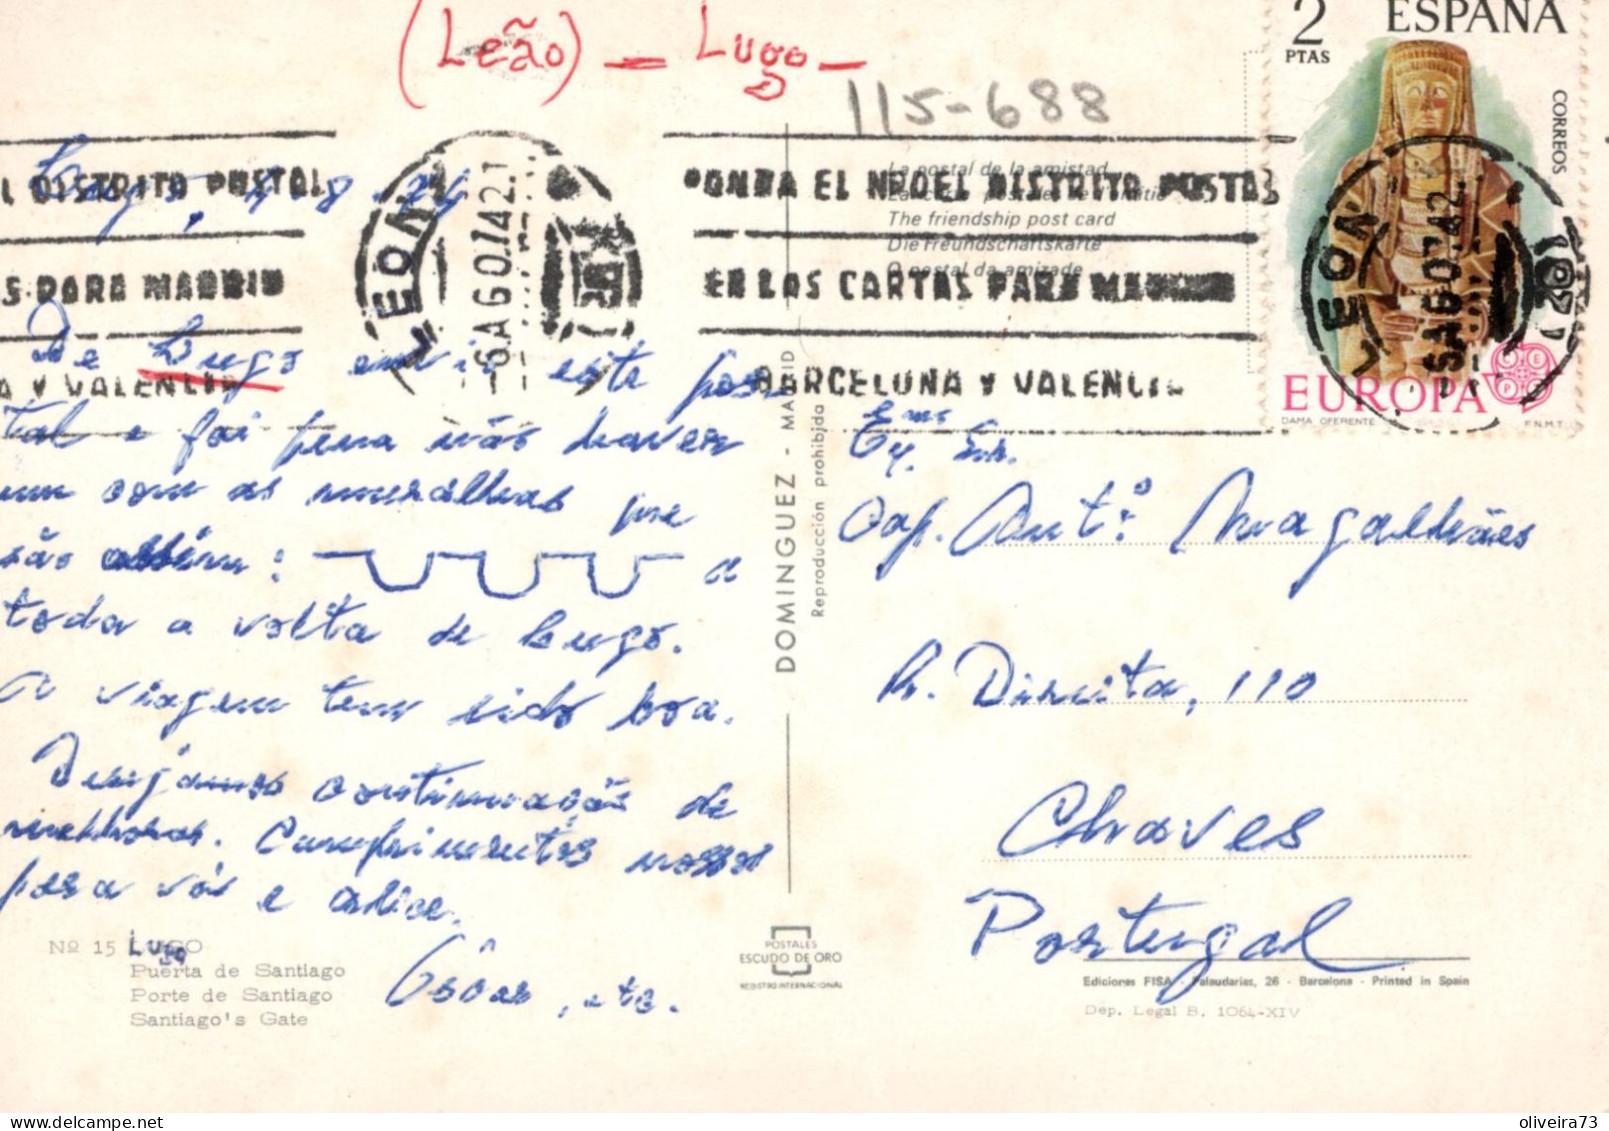 (Leão) — Lugo —
115-688
2 PTAS ESPAÑA
CORREOS
EUROPA
DAMA OFERENTE F.N.M.T.
L DISTRITO POSTAL
S PARA MADRID
A Y VALENCIA
LEON
6 AGO 74
PONGA EL Nº DEL DISTRITO POSTAL
EN LAS CARTAS PARA MADRID
BARCELONA Y VALENCIA
LEON
6 AGO 74
La postal de la amistad
The friendship post card
Die Freundschaftskarte
O postal da amizade
Lugo, 8
De Lugo envio este pos
tal e foi pena não haver
um com as muralhas que
são assim: a
toda a volta de Lugo.
A viagem tem sido boa.
Desejamos continuação de
melhoras. Cumprimentos nossos
para vós e Alice.
Óscar, etc.
Exmo Sr.
Cap. Antº Magalhães
R. Direita, 110
Chaves
Portugal
DOMINGUEZ - MADRID
Reproducción prohibida
Nº 15 LUGO
Lugo
Puerta de Santiago
Porte de Santiago
Santiago's Gate
POSTALES
ESCUDO DE ORO
REGISTRO INTERNACIONAL
Ediciones FISA - Palaudarias, 26 - Barcelona - Printed in Spain
Dep. Legal B. 1064-XIV
oliveira73